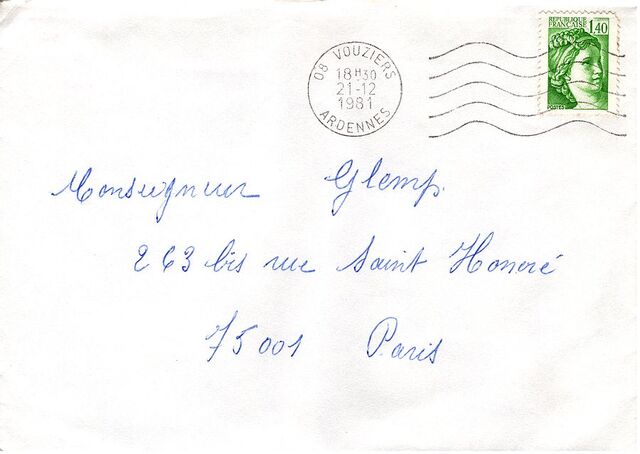 RÉPUBLIQUE
FRANÇAISE
1,40
POSTES
08 VOUZIERS
18H30
21-12
1981
ARDENNES
Monseigneur Glemp.
263 bis rue Saint Honoré
75001 Paris